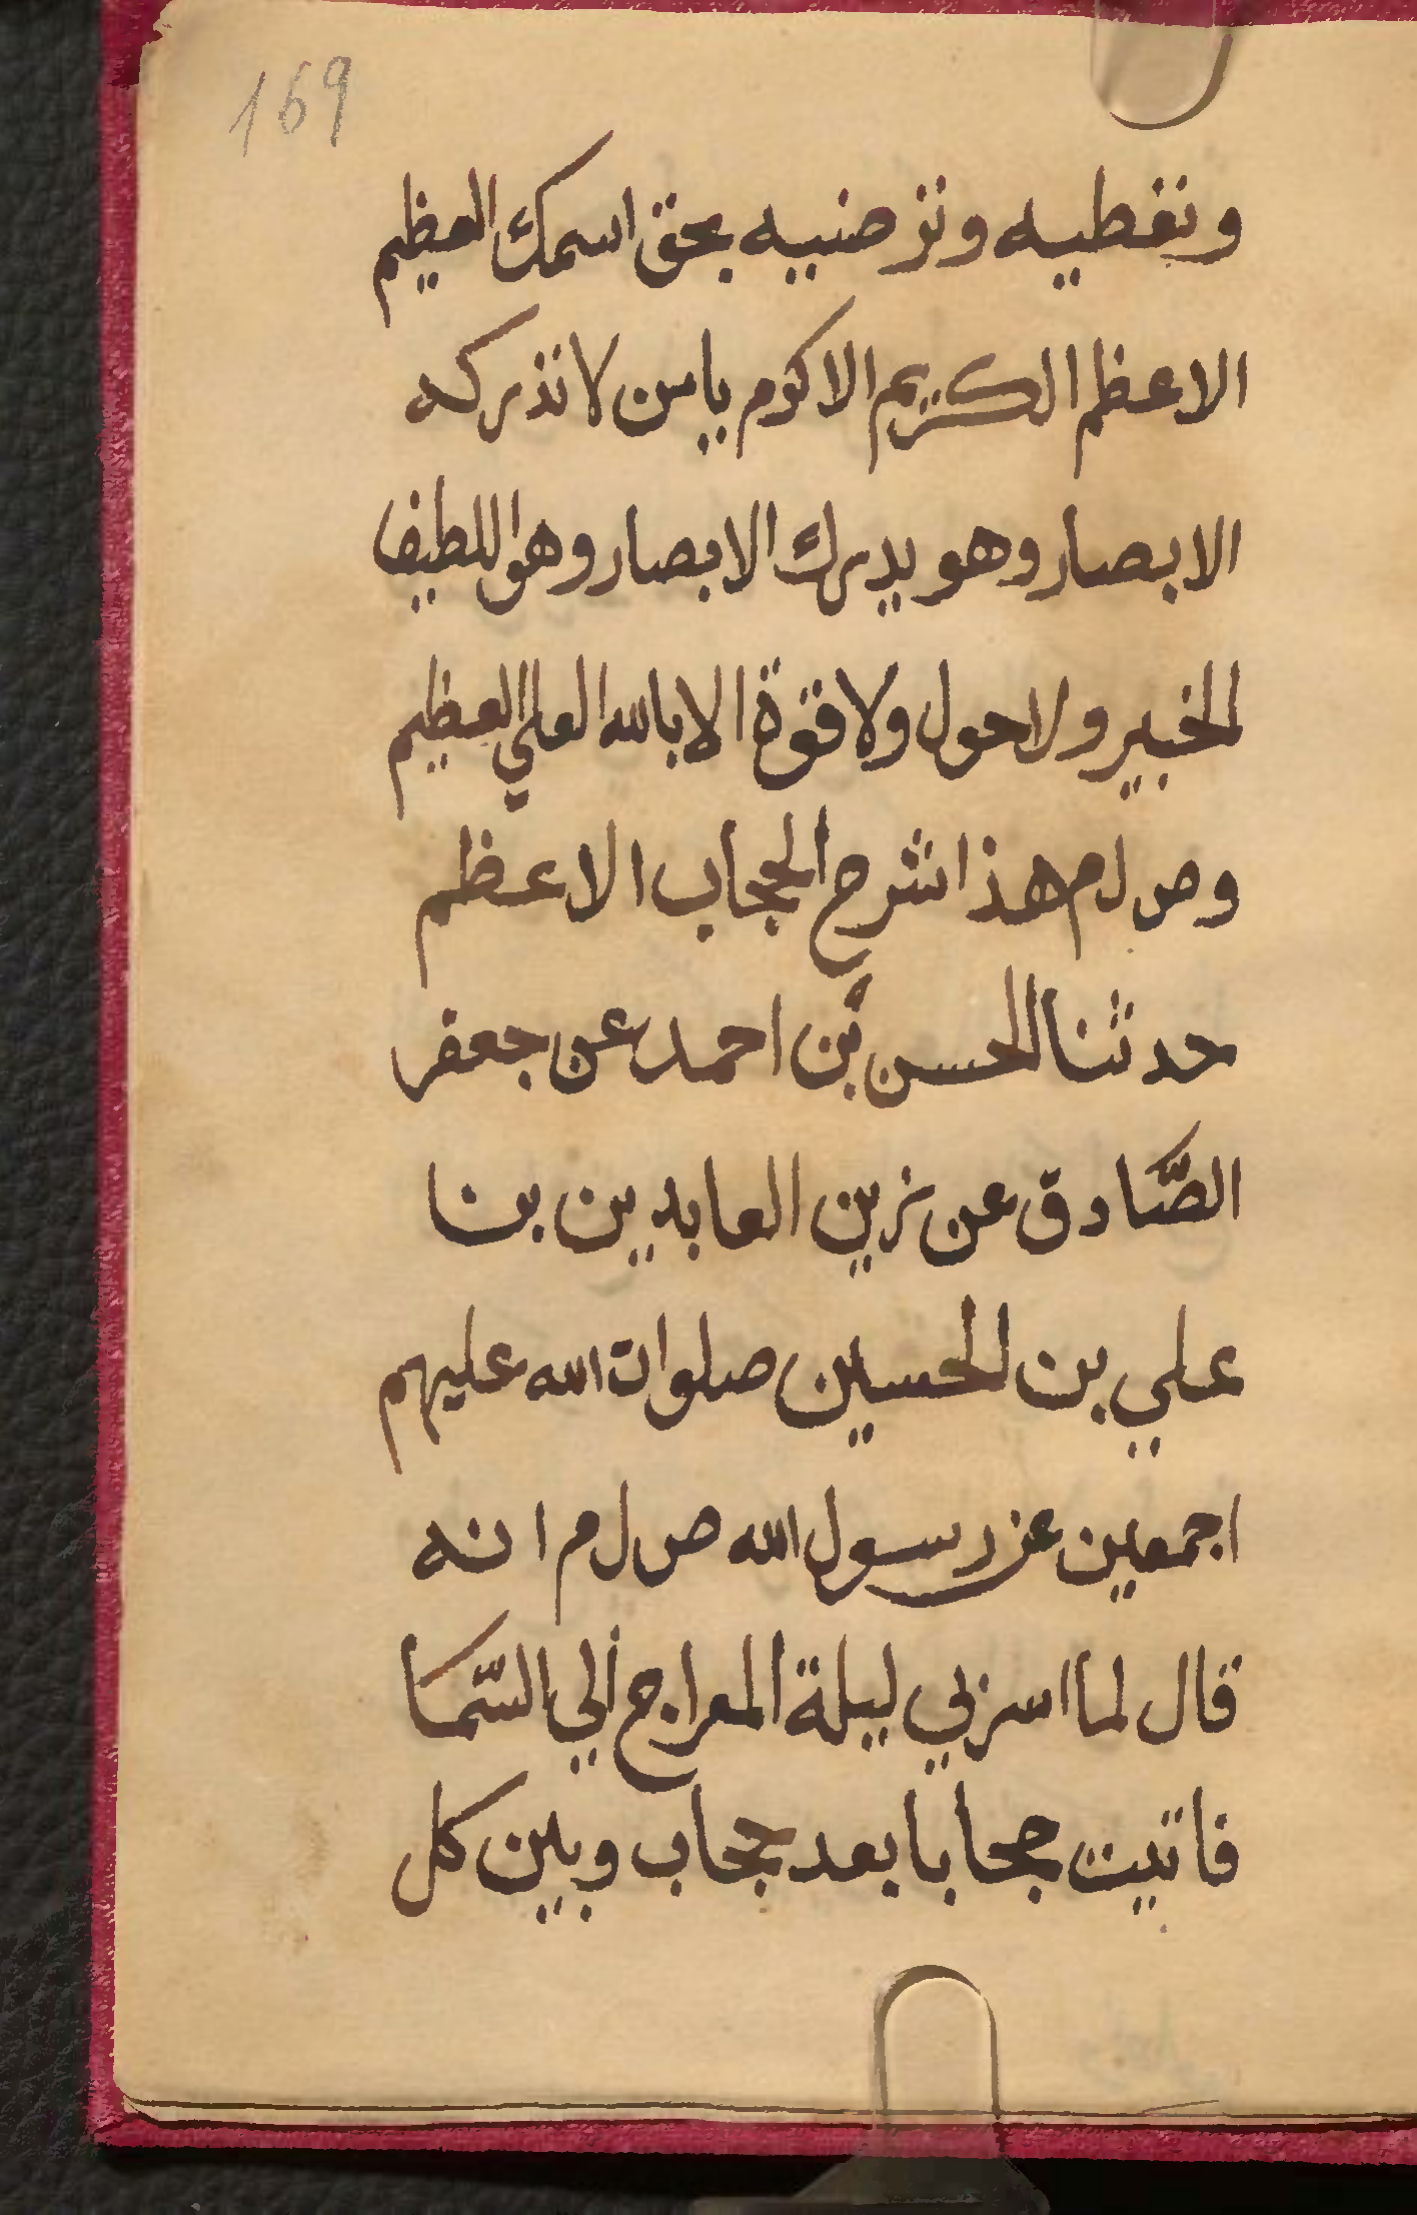 169
وتغطيه وتزضنيه بحق اسمك العظيم
الاعظم الكريم الاكوم يا من لا تذركه
الابصار وهو يدرك الابصار وهو اللطيف
الخبير ولا حول ولا قوة الا بالله العلي العظيم
وص ل م هذا شرح الحجاب الاعظم
حدثنا الحسن بن احمد عن جعفر
الصّادق عن زين العابدين بنا
علي بن الحسين صلوات الله عليهم
اجمعين عن رسول الله ص ل م انه
قال لما اسزبي ليلة المعراج ألي السّما
فاتيت حجابا بعد حجاب وبين كل